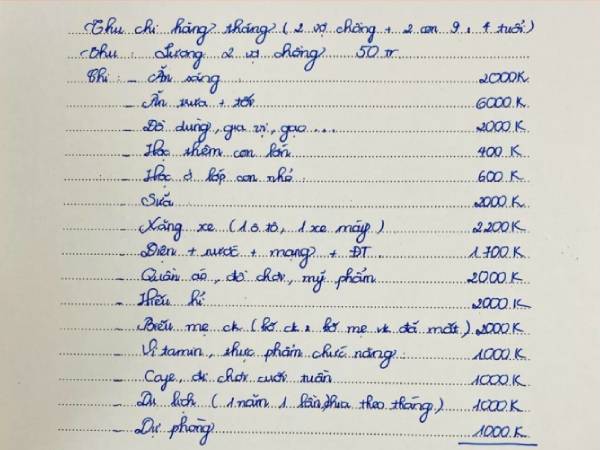 Thu chi hàng tháng ( 2 vợ chồng + 2 con 9 & 4 tuổi)
Thu : Lương 2 vợ chồng 50 tr
Chi : - Ăn sáng 2000K
- Ăn trưa + tối 6000 K
- Đồ dùng, gia vị, gạo ... 2000 K
- Học thêm con lớn 400 K
- Học ở lớp con nhỏ 600 K
- Sữa 2000 K
- Xăng xe ( 1 ô tô, 1 xe máy) 2200 K
- Điện + nước + mạng + ĐT 1.700 K
- Quần áo, đồ chơi, mỹ phẩm 2000 K
- Hiếu hỉ 2000 K
- Biếu mẹ ck ( bố ck & bố mẹ vk đã mất) 2000 K
- Vitamin, thực phẩm chức năng 1000 K
- Cafe, đi chơi cuối tuần 1000 K
- Du lịch ( 1 năm 1 lần, chia theo tháng) 1000 K
- Dự phòng 1000 K